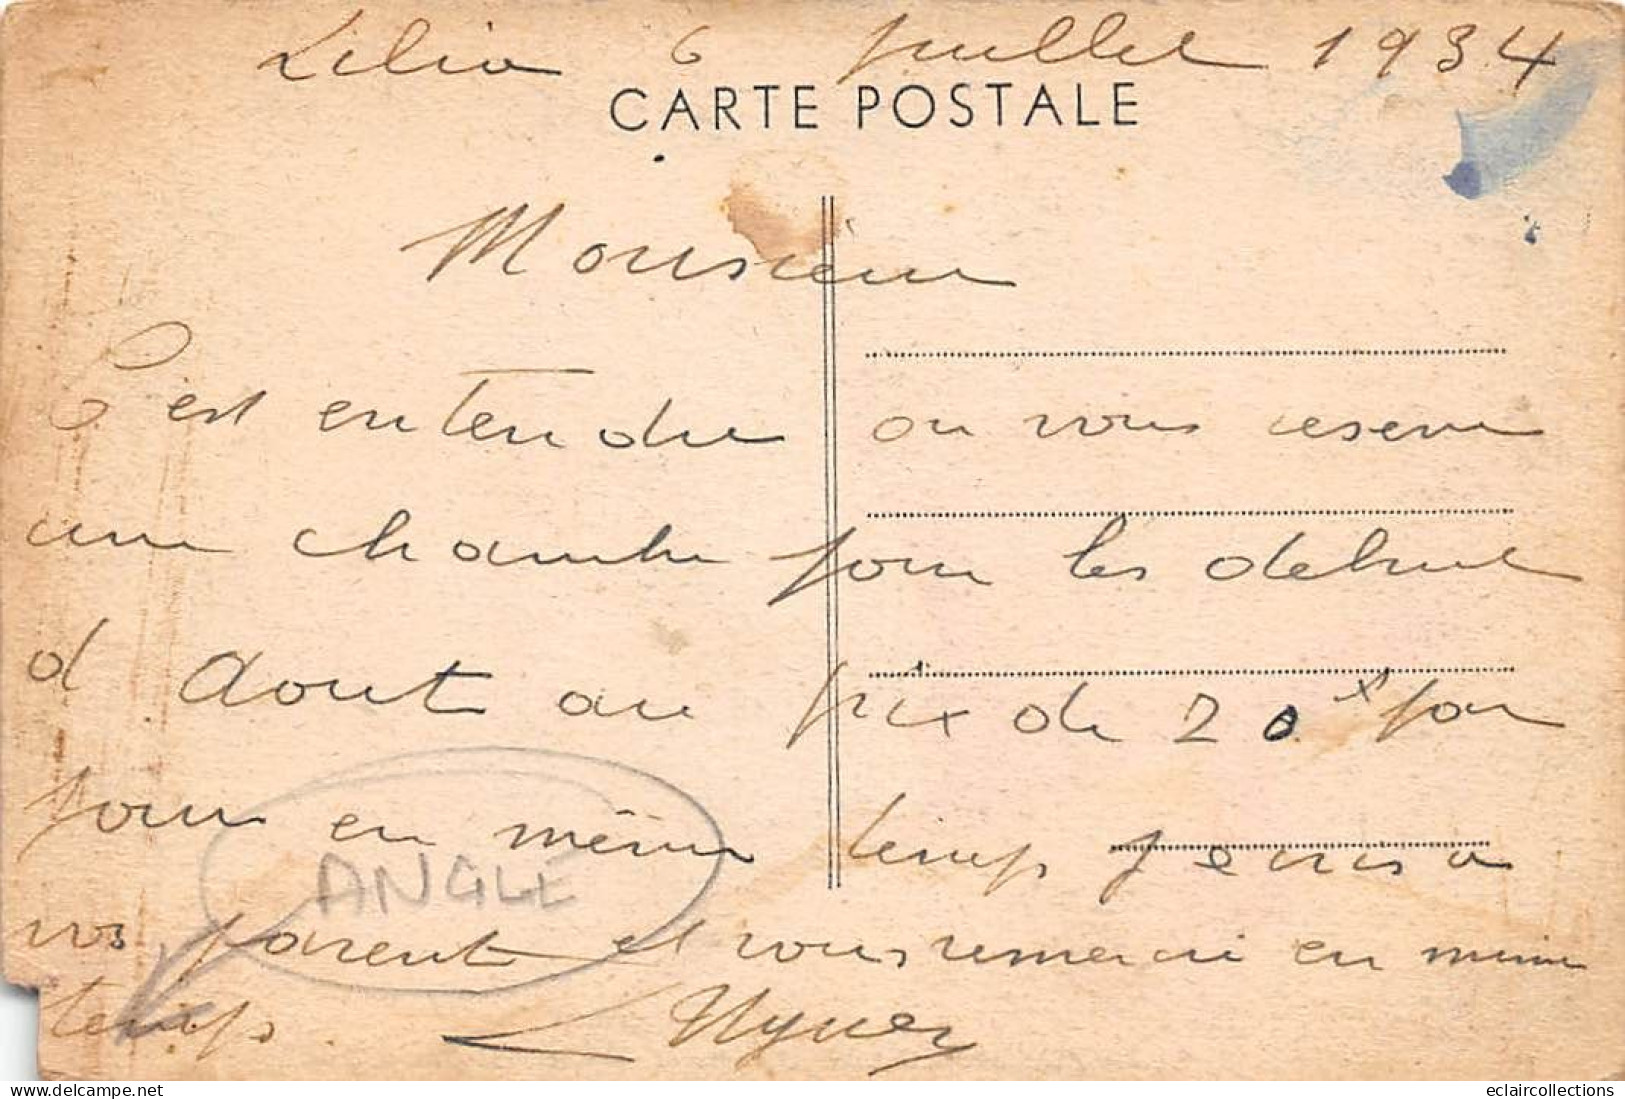 Lilia 6 Juillet 1934
CARTE POSTALE
Monsieur
C'est entendu on vous reserve
une chambre pour les debut
d Aout au prix de 20 par
jour en même temps
ANGLE
vos parent et vous remercie en même
temps.
eclaircollections